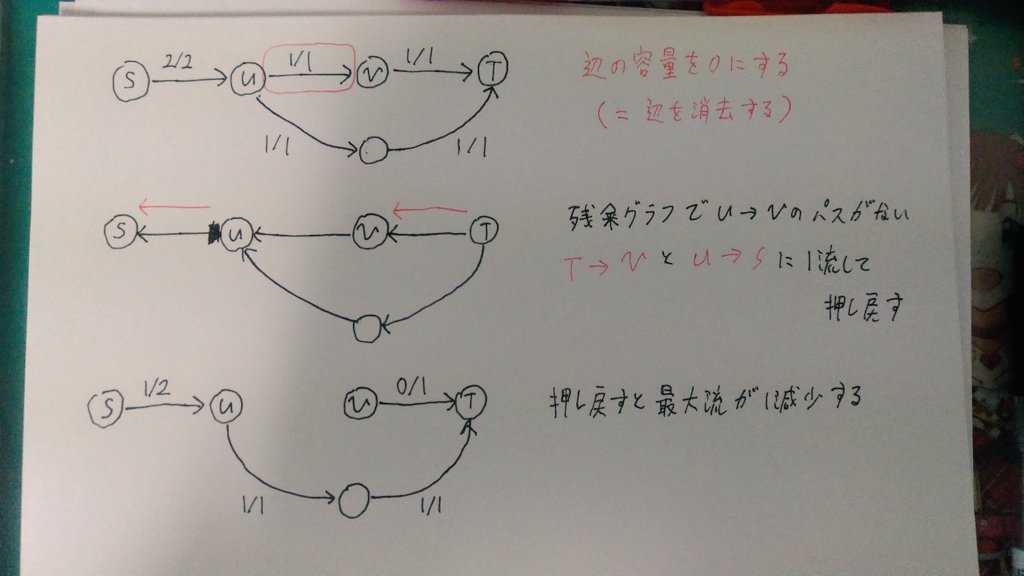 2/2 1/1 1/1
S u v T
1/1 1/1
辺の容量を0にする
(= 辺を消去する)
S u v T
残余グラフで u→vのパスがない
T→v と u→S に1流して
押し戻す
1/2 0/1
S u v T
1/1 1/1
押し戻すと最大流が1減少する